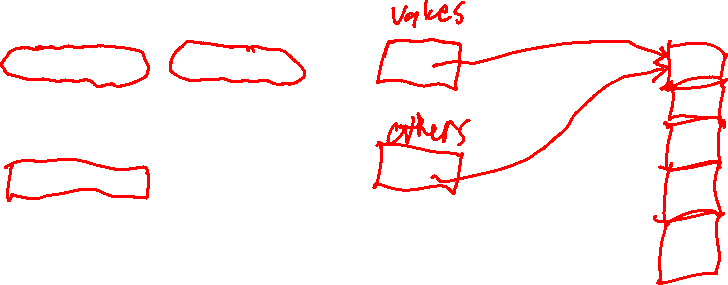 values
others